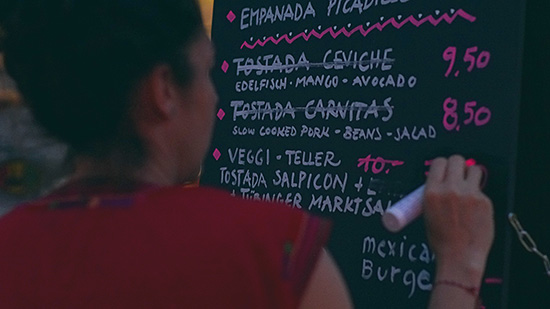 EMPANADA PICADILLO
TOSTADA CEVICHE 9,50
EDELFISCH · MANGO · AVOCADO
TOSTADA CARNITAS 8,50
SLOW COOKED PORK · BEANS · SALAD
VEGGI - TELLER 10.-
TOSTADA SALPICON +
+ TÜBINGER MARKTSA
mexica
Burge